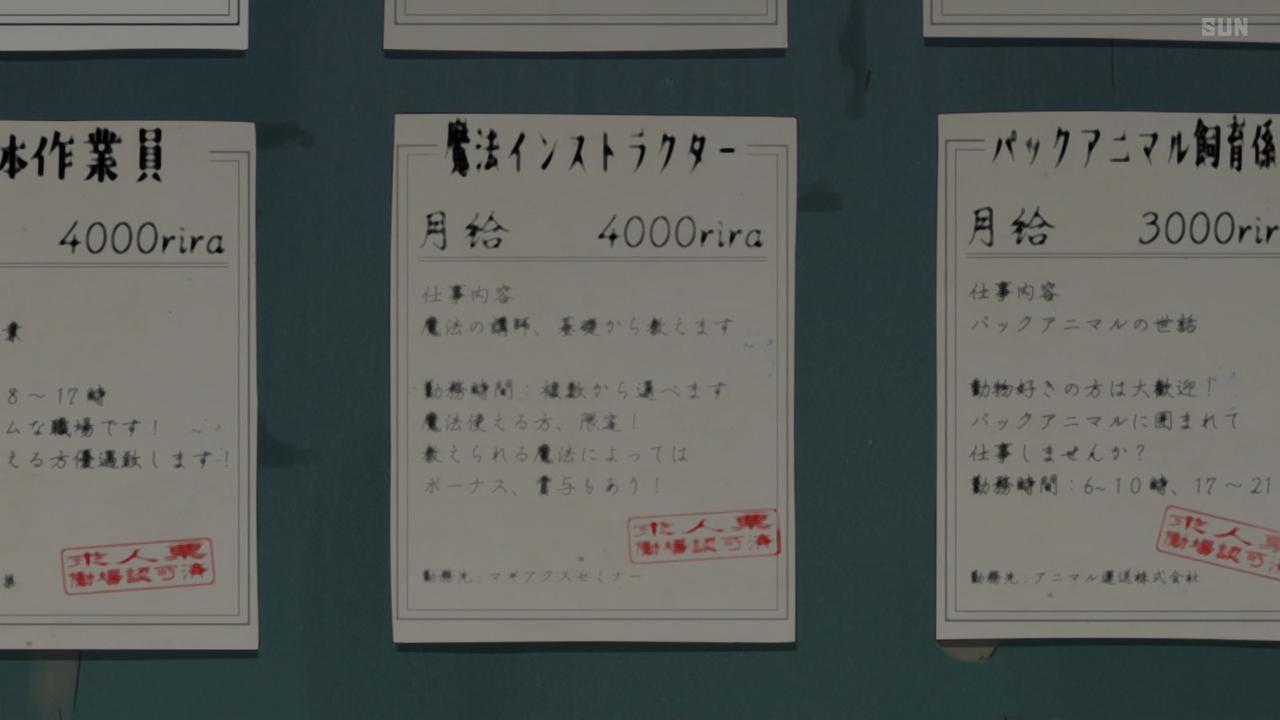 SUN
本作業員
4000rira
業
8～17時
ムな職場です！
える方優遇致します！
求人票
働場認可済
業
魔法インストラクター
月給 4000rira
仕事内容
魔法の講師、基礎から教えます
勤務時間：複数から選べます
魔法使える方、限定！
教えられる魔法によっては
ボーナス、賞与もあり！
求人票
働場認可済
勤務先：マギアクスセミナー
パックアニマル飼育係
月給 3000rir
仕事内容
パックアニマルの世話
動物好きの方は大歓迎！
パックアニマルに囲まれて
仕事しませんか？
勤務時間：6~10時、17～21
求人票
働場認可済
勤務先：アニマル運送株式会社